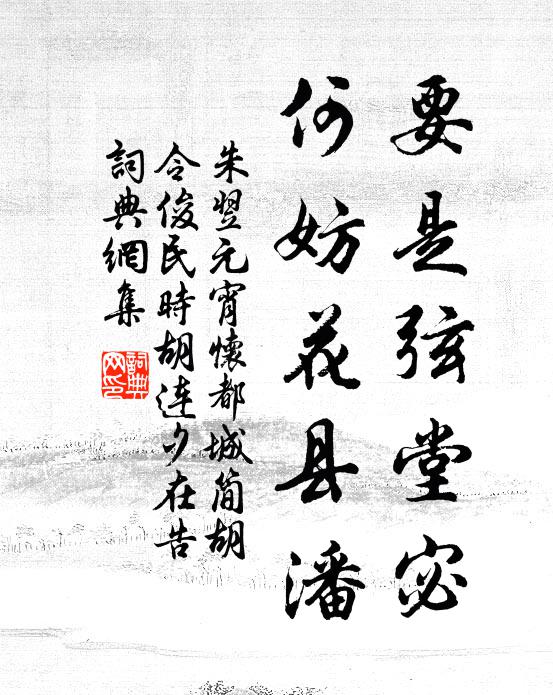 要是弦堂宓
何妨花县潘
朱翌元宵懷都城简胡
令俊民時胡连夕在告
詞典網集
詞典
网印